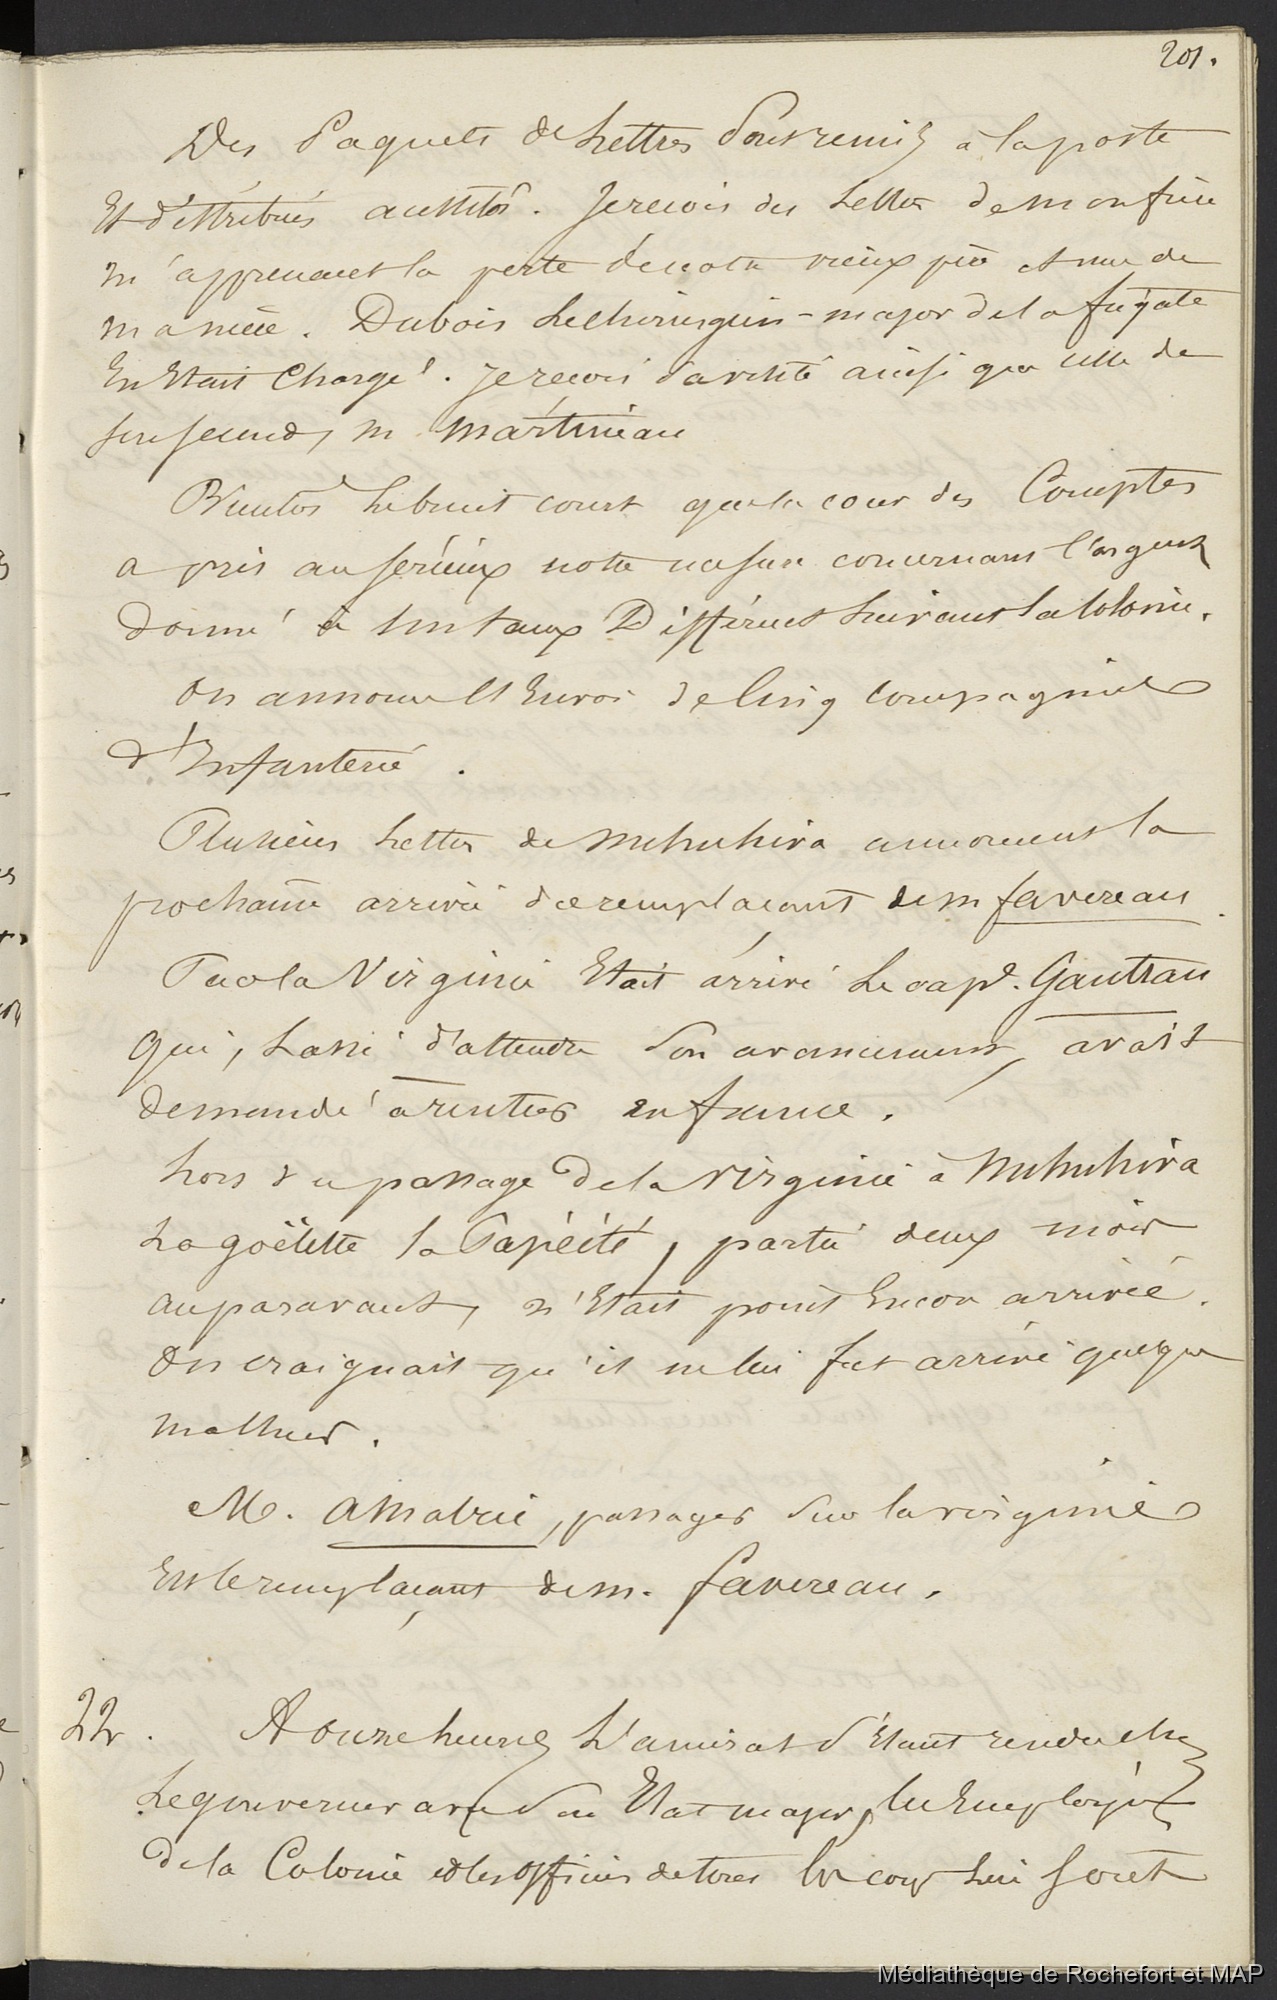 201.
Des Paquets de Lettres Sont remis à la poste
Et distribués aussitôt. Je reçois des Lettres de mon frère
m'apprenant la perte de notre vieux père et une de
ma mère. Dubois Le chirurgien-major de la frégate
En Etait Chargé. Je reçois sa visite ainsi que celle de
son second, m Martineau
Bientôt Le bruit court que la cour des Comptes
a pris au sérieux notre concernant l'argent
donné à un taux Différent suivant la Colonie.
On annonce l'Envoi de Cinq Compagnies
d'Infanterie.
Plusieurs Lettres de Nuhuhiva annoncent la
prochaine arrivée du remplaçant de m favereau.
Par la Virginie Etait arrivé Le cap.e Gautran
qui, Lassé d'attendre Son avancement, avait
demandé à rentrer en france.
Lors du passage De la Virginie à Nuhuhiva
La goëlette la Papéïté, partie deux mois
auparavant, n'Etait point Encore arrivée.
On craignait qu'il ne lui fut arrivé quelque
malheur.
M. Amalric, passager Sur la virginie
Est le remplaçant de m. favereau.
22. A onze heures L'amiral S'Etant rendu chez
Le gouverneur avec Son Etat major, les Employés
De la Colonie et les officiers de terre lui sont
Médiathèque de Rochefort et MAP